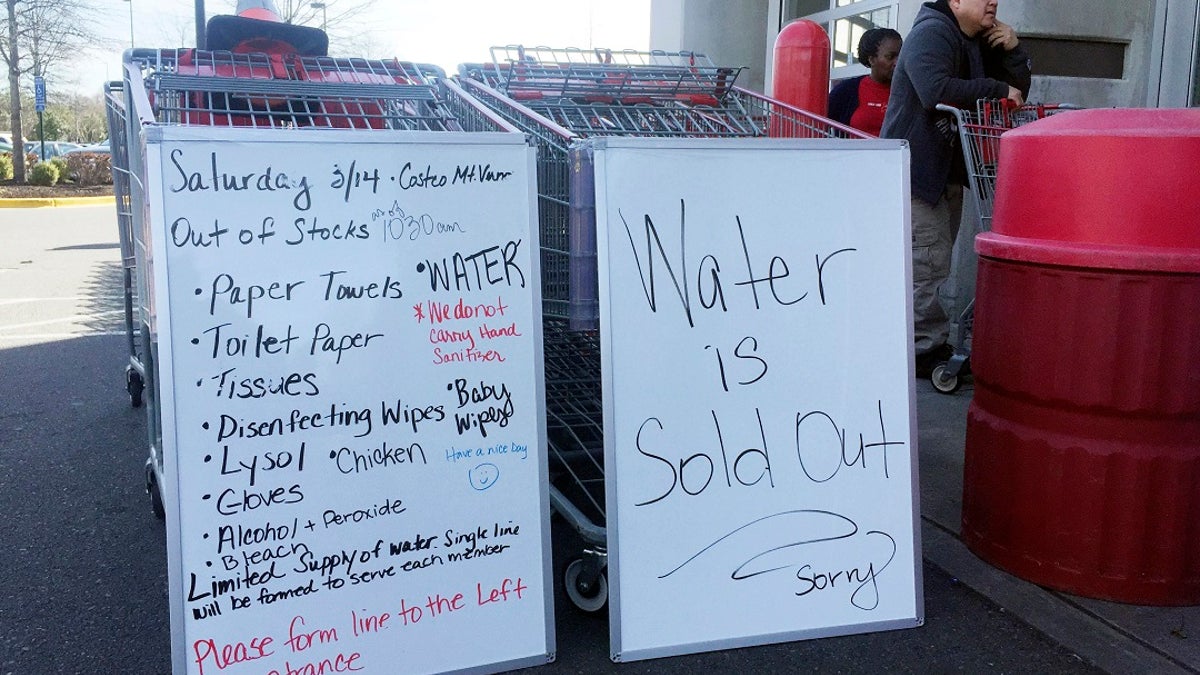 Saturday 3/14 · Costco Mt. Vernn
Out of Stocks as of 1030am
· Paper Towels
· WATER
* We do not
Carry Hand
Sanitizer
· Toilet Paper
· Tissues
· Disenfecting Wipes
· Baby
Wipes
· Lysol · Chicken
Have a nice Day
· Gloves
· Alcohol + Peroxide
· Bleach
Limited Supply of water. Single line
will be formed to serve each member
Please form line to the Left
Water
is
Sold Out
Sorry